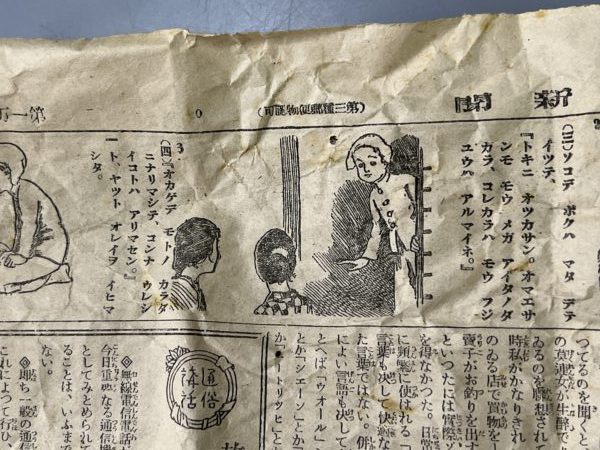 新聞
(第三種郵便物認可)
第一万
(三)ソコデ ボクハ マタ デテ
イツテ、
『トキニ オツカサン。オマエサ
ンモ モウ メガ アイタノダ
カラ、コレカラハ モウ フジ
ユウハ アルマイネ。』
(四)『オカゲデ モトノ カラダ
ニナリマシテ、コンナ ウレシ
イコトハ アリマセン。』
ト、ヤツト オレイヲ イヒマ
シタ。
つてるのを聞くと、
ゐるのを聯想されて
時私がかなりきれ
のゐる店で買物を
賣子がお釣りを出す
といつたには實際
を得なかつた。日常
に頻繁に使はれる「
言葉も決して快適な
た言葉ではない。併
によい言語も決して
とへば「ウオール」
とか「シエーン」とか「
か「イートリツヒ」と
通俗
講話
◎無線電信電話が
今日重要なる通信機
としてみとめられて
ることは、いふまで
ない。
◎即ち一般の通信
これによつて行ひ、